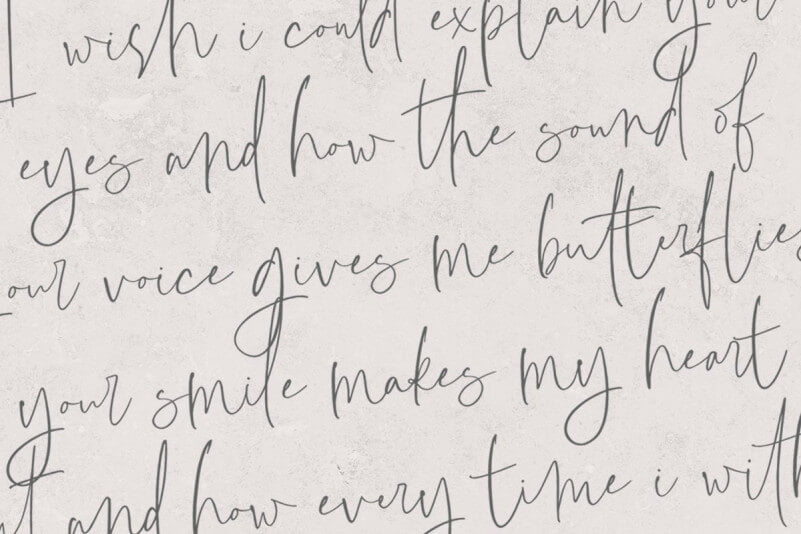 I wish i could explain your
eyes and how the sound of
our voice gives me butterflies
your smile makes my heart
and how every time i with